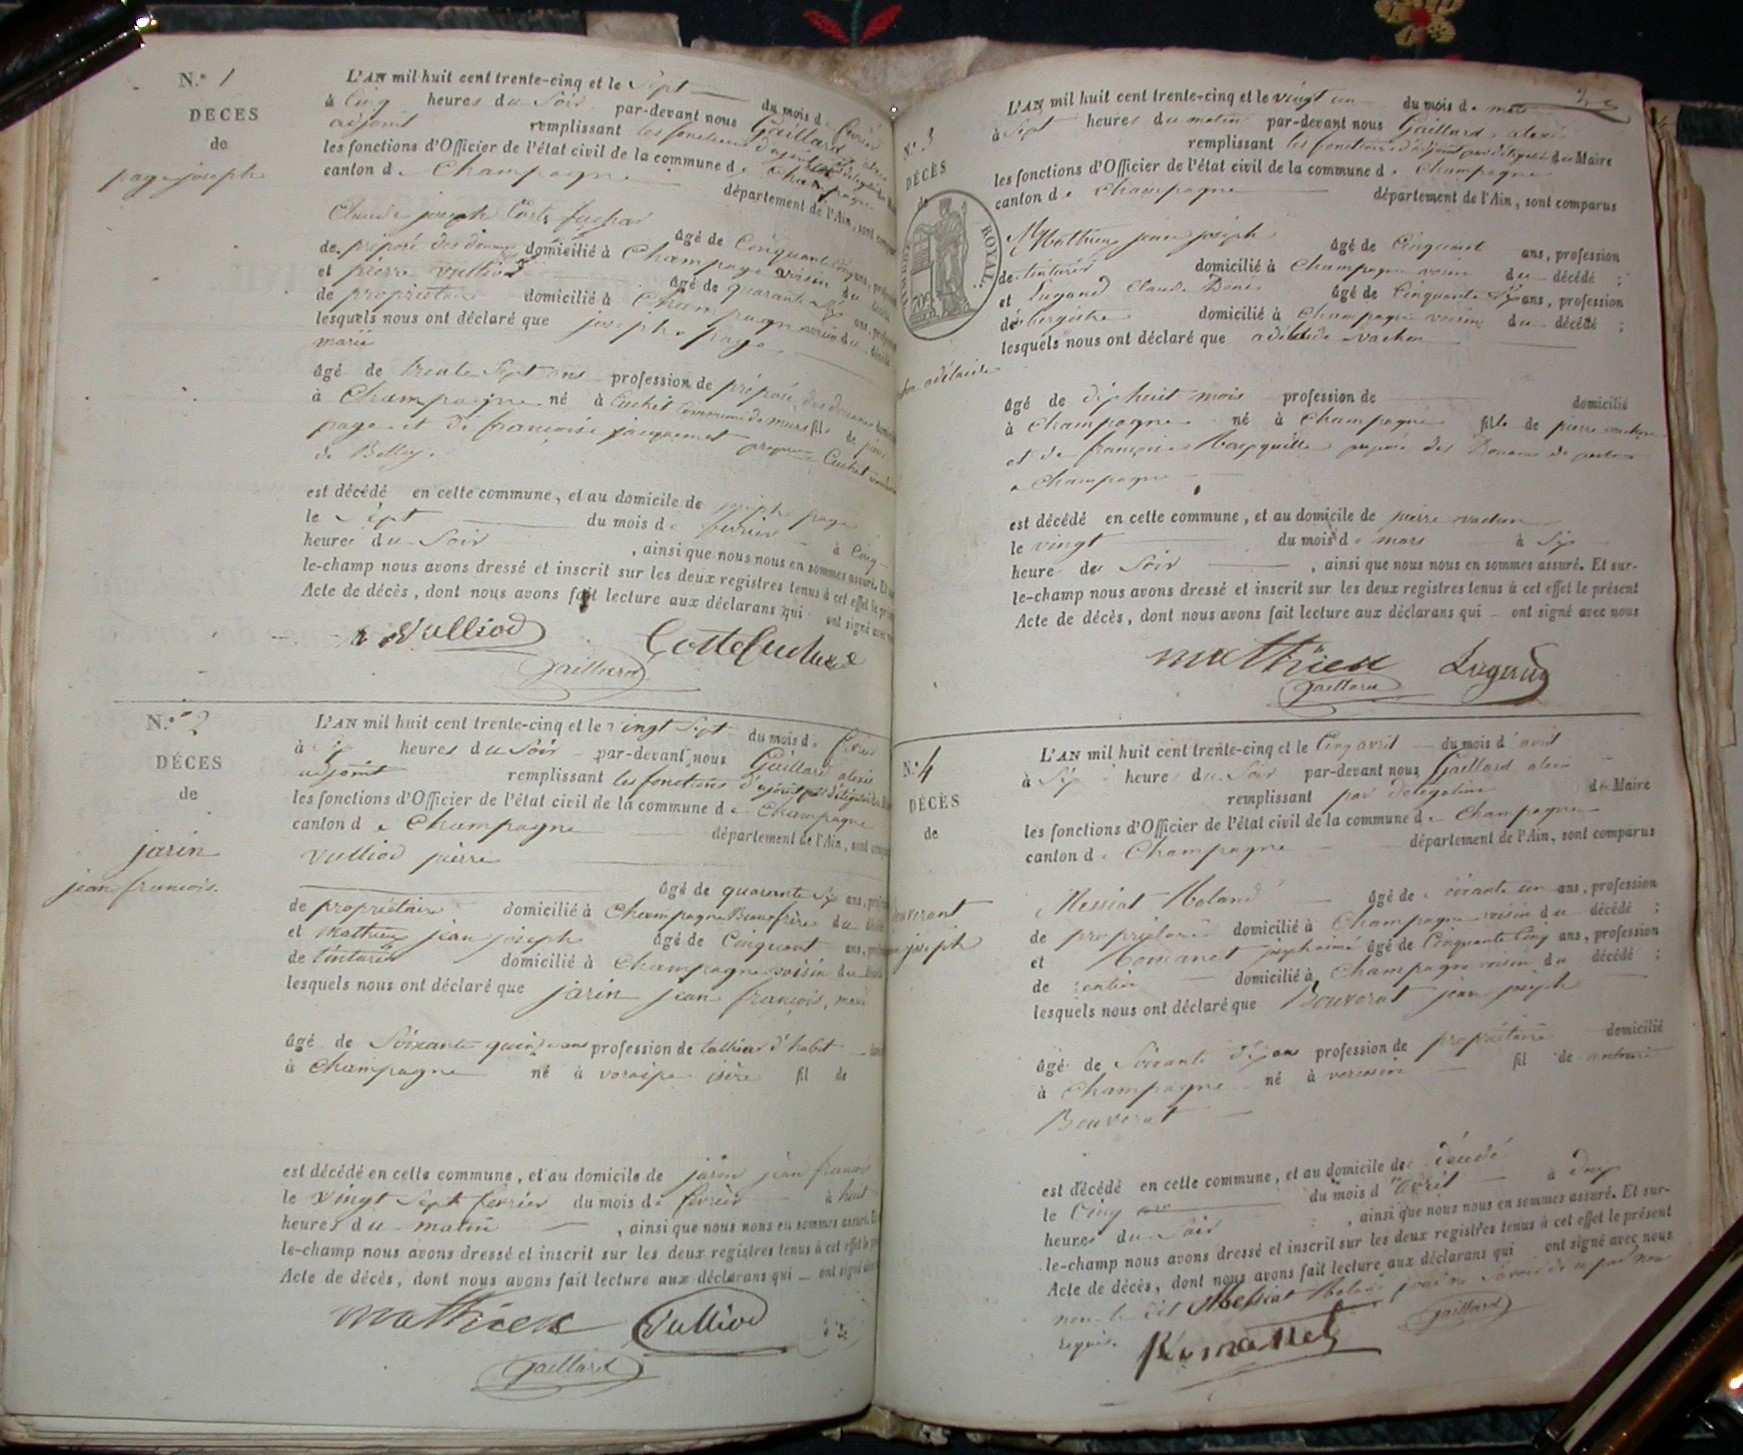 N.º 1
DECES
de
page joseph
L'AN mil huit cent trente-cinq et le sept du mois de février
à cinq heures du soir par-devant nous Gaillard alexis
adjoint remplissant les fonctions d'adjoint par délégation du
les fonctions d'Officier de l'état civil de la commune de Champagne
canton de Champagne département de l'Ain, sont
Claude joseph
âgé de Cinquante ans,
de préposé des douanes domicilié à Champagne voisin du
et pierre vulliod âgé de quarante ans,
de propriétaire domicilié à Champagne voisin du
lesquels nous ont déclaré que joseph page
marié
âgé de trente sept ans profession de préposé des douanes
à Champagne né à Cuchet commune de murs fils de
page et de françoise jacquemet
de Belley.
est décédé en cette commune, et au domicile de joseph page
le sept du mois de février à cinq
heures du soir , ainsi que nous nous en sommes assuré. Et
le-champ nous avons dressé et inscrit sur les deux registres tenus à cet effet le
Acte de décès, dont nous avons fait lecture aux déclarans qui ont signé avec
Vulliod
Gaillard
N.º 2
DÉCES
de
jarin
jean françois.
L'AN mil huit cent trente-cinq et le vingt sept du mois de février
à six heures du soir par-devant nous Gaillard alexis
adjoint remplissant les fonctions d'adjoint par délégation
les fonctions d'Officier de l'état civil de la commune de Champagne
canton de Champagne département de l'Ain, sont
vulliod pierre
âgé de quarante six ans,
de propriétaire domicilié à Champagne Beaufrère du
et Mathieu jean joseph âgé de Cinquant ans,
de tinturié domicilié à Champagne voisin du
lesquels nous ont déclaré que jarin jean françois, marié
âgé de Soixante quinze ans profession de tallieur d'habit
à Champagne né à fil de
est décédé en cette commune, et au domicile de jarin jean françois
le vingt sept fevrier du mois de fevrier à huit
heures du matin , ainsi que nous nous en sommes assuré.
le-champ nous avons dressé et inscrit sur les deux registres tenus à cet effet le
Acte de décès, dont nous avons fait lecture aux déclarans qui ont signé
mathieu Vulliod
Gaillard
N.º 3
DÉCÈS
de
adelaide
TIMBRE ROYAL.
L'AN mil huit cent trente-cinq et le vingt un du mois de mars
à sept heures du matin par-devant nous Gaillard alexis
remplissant les fonctions d'adjoint par délégation du Maire
les fonctions d'Officier de l'état civil de la commune de Champagne
canton de Champagne département de l'Ain, sont comparus
Mathieu jean joseph
âgé de Cinquant ans, profession
de tinturié domicilié à Champagne voisin du décédé ;
et Lugand Claude Denis âgé de Cinquante six ans, profession
de domicilié à Champagne voisin du décédé ;
lesquels nous ont déclaré que adélaide vachon
âgé de dix huit mois profession de domicilié
à Champagne né à Champagne fille de pierre vachon
et de françoise préposé des Douanes
a Champagne
est décédé en cette commune, et au domicile de pierre vachon
le vingt du mois de mars à six
heure du soir , ainsi que nous nous en sommes assuré. Et sur-
le-champ nous avons dressé et inscrit sur les deux registres tenus à cet effet le présent
Acte de décès, dont nous avons fait lecture aux déclarans qui ont signé avec nous
mathieu Lugand
Gaillard
N.º 4
DÉCÈS
de
Bouverat
jean joseph
L'AN mil huit cent trente-cinq et le Cinq avril du mois d'avril
à six heures du soir par-devant nous Gaillard alexis
remplissant par delegation du Maire
les fonctions d'Officier de l'état civil de la commune de Champagne
canton de Champagne département de l'Ain, sont comparus
Messiat Roland âgé de soixante un ans, profession
de propriétaire domicilié à Champagne voisin du décédé ;
et Romanet âgé de Cinquante Cinq ans, profession
de rentier domicilié à Champagne voisin du décédé ;
lesquels nous ont déclaré que Bouverat jean joseph
âgé de Soixante ans profession de propriétaire domicilié
à Champagne né à fil de
Bouverat
est décédé en cette commune, et au domicile de décédé
le Cinq du mois d'avril à deux
heures du soir , ainsi que nous nous en sommes assuré. Et sur-
le-champ nous avons dressé et inscrit sur les deux registres tenus à cet effet le présent
Acte de décès, dont nous avons fait lecture aux déclarans qui ont signé avec nous
non le dit Messiat Roland pour ne savoir de ce
requis.
Romanet Gaillard